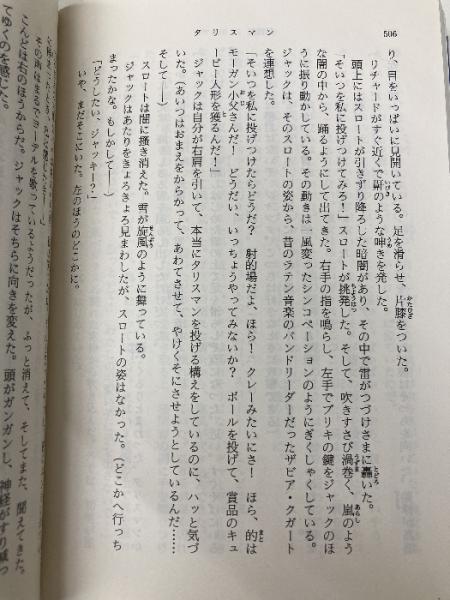 506
タリスマン
り、目をいっぱいに見開いている。足を滑らせ、片膝をついた。
リチャードがすぐ近くで鼾のような呻きを発した。
頭上にはスロートが引きずり降ろした暗闇があり、その中で雷がつづけさまに轟いた。
「そいつを私に投げつけてみろ！」スロートが挑発した。そして、吹きすさび渦巻く、嵐のよう
な闇の中から、踊るようにして出てきた。右手の指を鳴らし、左手でブリキの鍵をジャックのほ
うに振り動かしている。その動きは一風変ったシンコペーションのようにぎくしゃくしている。
ジャックは、そのスロートの姿から、昔のラテン音楽のバンドリーダーだったザビア・クガート
を連想した。
「そいつを私に投げつけたらどうだ？　射的場だよ、ほら！　クレーみたいにさ！　ほら、的は
モーガン小父さんだ！　どうだい、いっちょうやってみないか？　ボールを投げて、賞品のキュ
ーピー人形を獲るんだ！」
ジャックは自分が右肩を引いて、本当にタリスマンを投げる構えをしているのに、ハッと気づ
いた。（あいつはおまえをからかって、あわてさせて、やけくそにさせようとしているんだ……
そして――）
スロートは闇に搔き消えた。雪が旋風のように舞っている。
ジャックはあたりをきょろきょろ見まわしたが、スロートの姿はなかった。（どこかへ行っち
まったかな。もしかして――）
「どうしたい、ジャッキー？」
いや、まだそこにいた。左のほうのどこかに。
その声はまるでヨーデルを歌っているようだったが、ふっと消えて、そしてまた、聞えてきた。
こんどは右のほうからだ。ジャックはそちらに向きを変えた。頭がガンガンし、神経がすり減っ
てゆくのを感じた。